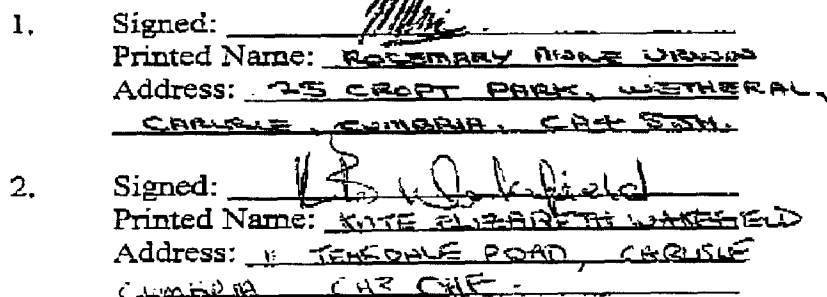 1. Signed:
Printed Name: ROSEMARY ANNE URWIN
Address: 25 CROFT PARK, WETHERAL,
CARLISLE, CUMBRIA, CA4
2. Signed: Wakefield
Printed Name: KATE ELIZABETH WAKEFIELD
Address: 11 ROAD, CARLISLE
CUMBRIA